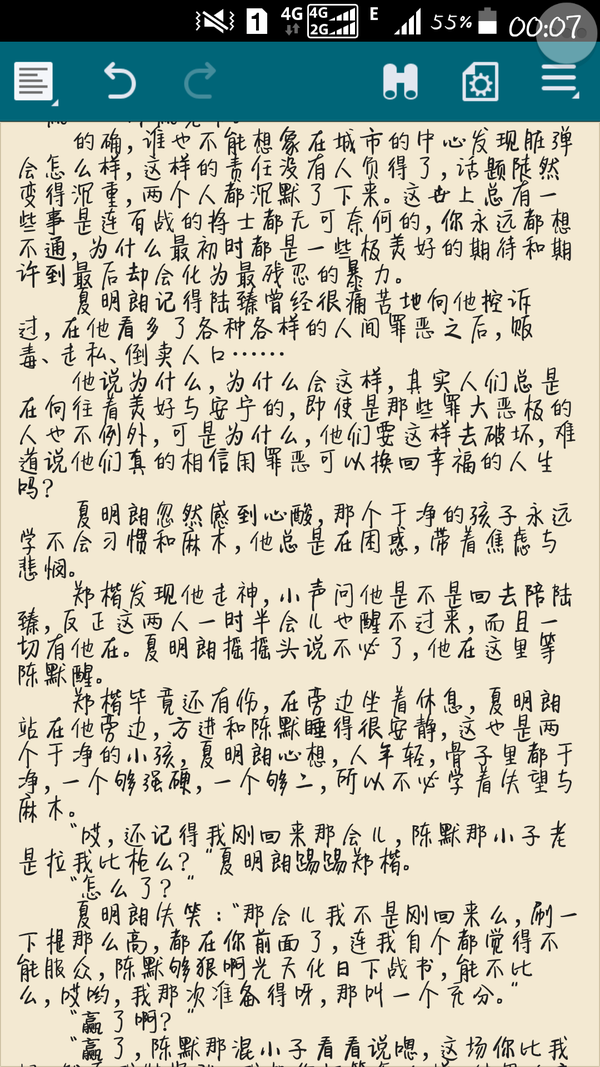 1 4G 4G 2G E 55% 00:07
的确，谁也不能想象在城市的中心发现脏弹
会怎么样，这样的责任没有人负得了，话题陡然
变得沉重，两个人都沉默了下来。这世上总有一
些事是连百战的将士都无可奈何的，你永远都想
不通，为什么最初时都是一些极美好的期待和期
许到最后却会化为最残忍的暴力。
夏明朗记得陆臻曾经很痛苦地向他控诉
过，在他看多了各种各样的人间罪恶之后，贩
毒、走私、倒卖人口……
他说为什么，为什么会这样，其实人们总是
在向往着美好与安宁的，即使是那些罪大恶极的
人也不例外，可是为什么，他们要这样去破坏，难
道说他们真的相信用罪恶可以换回幸福的人生
吗？
夏明朗忽然感到心酸，那个干净的孩子永远
学不会习惯和麻木，他总是在困惑，带着焦虑与
悲悯。
郑楷发现他走神，小声问他是不是回去陪陆
臻，反正这两人一时半会儿也醒不过来，而且一
切有他在。夏明朗摇摇头说不必了，他在这里等
陈默醒。
郑楷毕竟还有伤，在旁边坐着休息，夏明朗
站在他旁边，方进和陈默睡得很安静，这也是两
个干净的小孩，夏明朗心想，人年轻，骨子里都干
净，一个够强硬，一个够二，所以不必学着失望与
麻木。
“哎，还记得我刚回来那会儿，陈默那小子老
是拉我比枪么？”夏明朗踢踢郑楷。
“怎么了？”
夏明朗失笑：“那会儿我不是刚回来么，刷一
下提那么高，都在你前面了，连我自个都觉得不
能服众，陈默够狠啊光天化日下战书，能不比
么，哎哟，我那次准备得呀，那叫一个充分。”
“赢了啊？”
“赢了，陈默那混小子看看说嗯，这场你比我